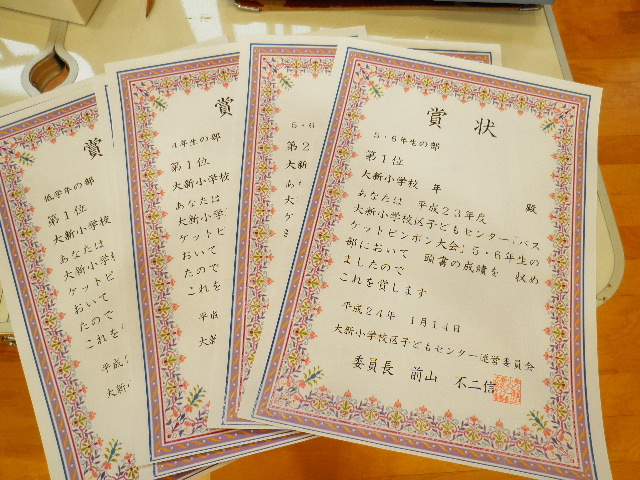 賞
低学年の部
第1位
大新小学校
あなたは
大新小学校
ケットピ
おいて
たので
これを
平成
大新小
賞
4年生の部
第1位
大新小学校
あなたは
大新小学校
ケットピン
おいて
たので
これを
平成
大新
5・6
第2
大新
あな
大
ケ
賞状
5・6年生の部
第1位
大新小学校 年 殿
あなたは 平成23年度
大新小学校区子どもセンター「バス
ケットピンポン大会」5・6年生の
部において 頭書の成績を 収め
ましたので
これを賞します
平成24年 1月14日
大新小学校区子どもセンター運営委員会
委員長 前山 不二信